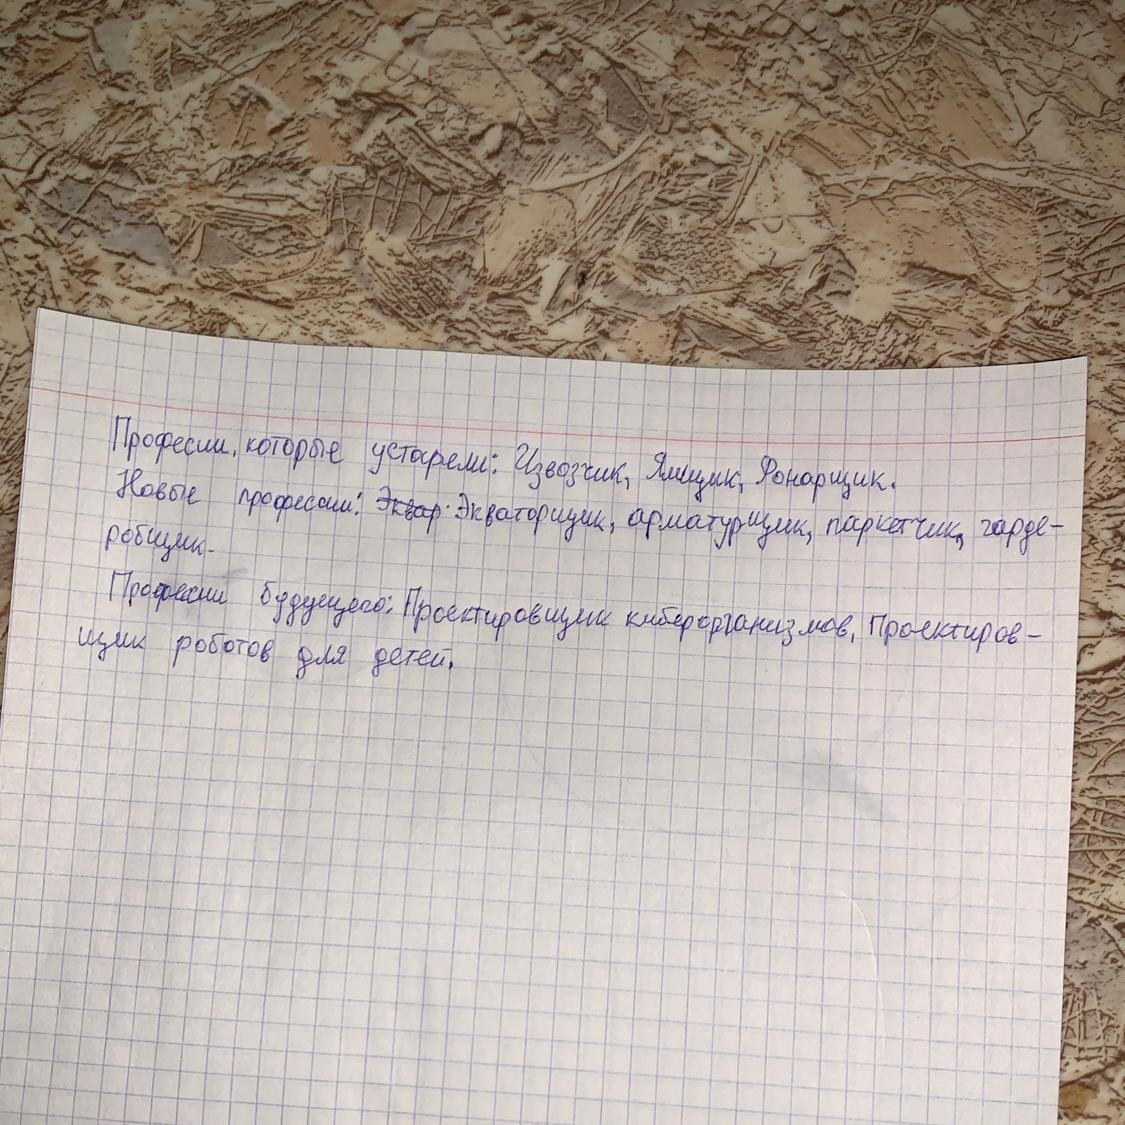 Професии, которые устарели: Извозчик, Ямщик, Фонарщик.
Новые професии: Эквар Экваторщик, арматурщик, паркетчик, гарде-
робщик.
Професии будущего: Проектировщик киберорганизмов, Проектиров-
щик роботов для детей.